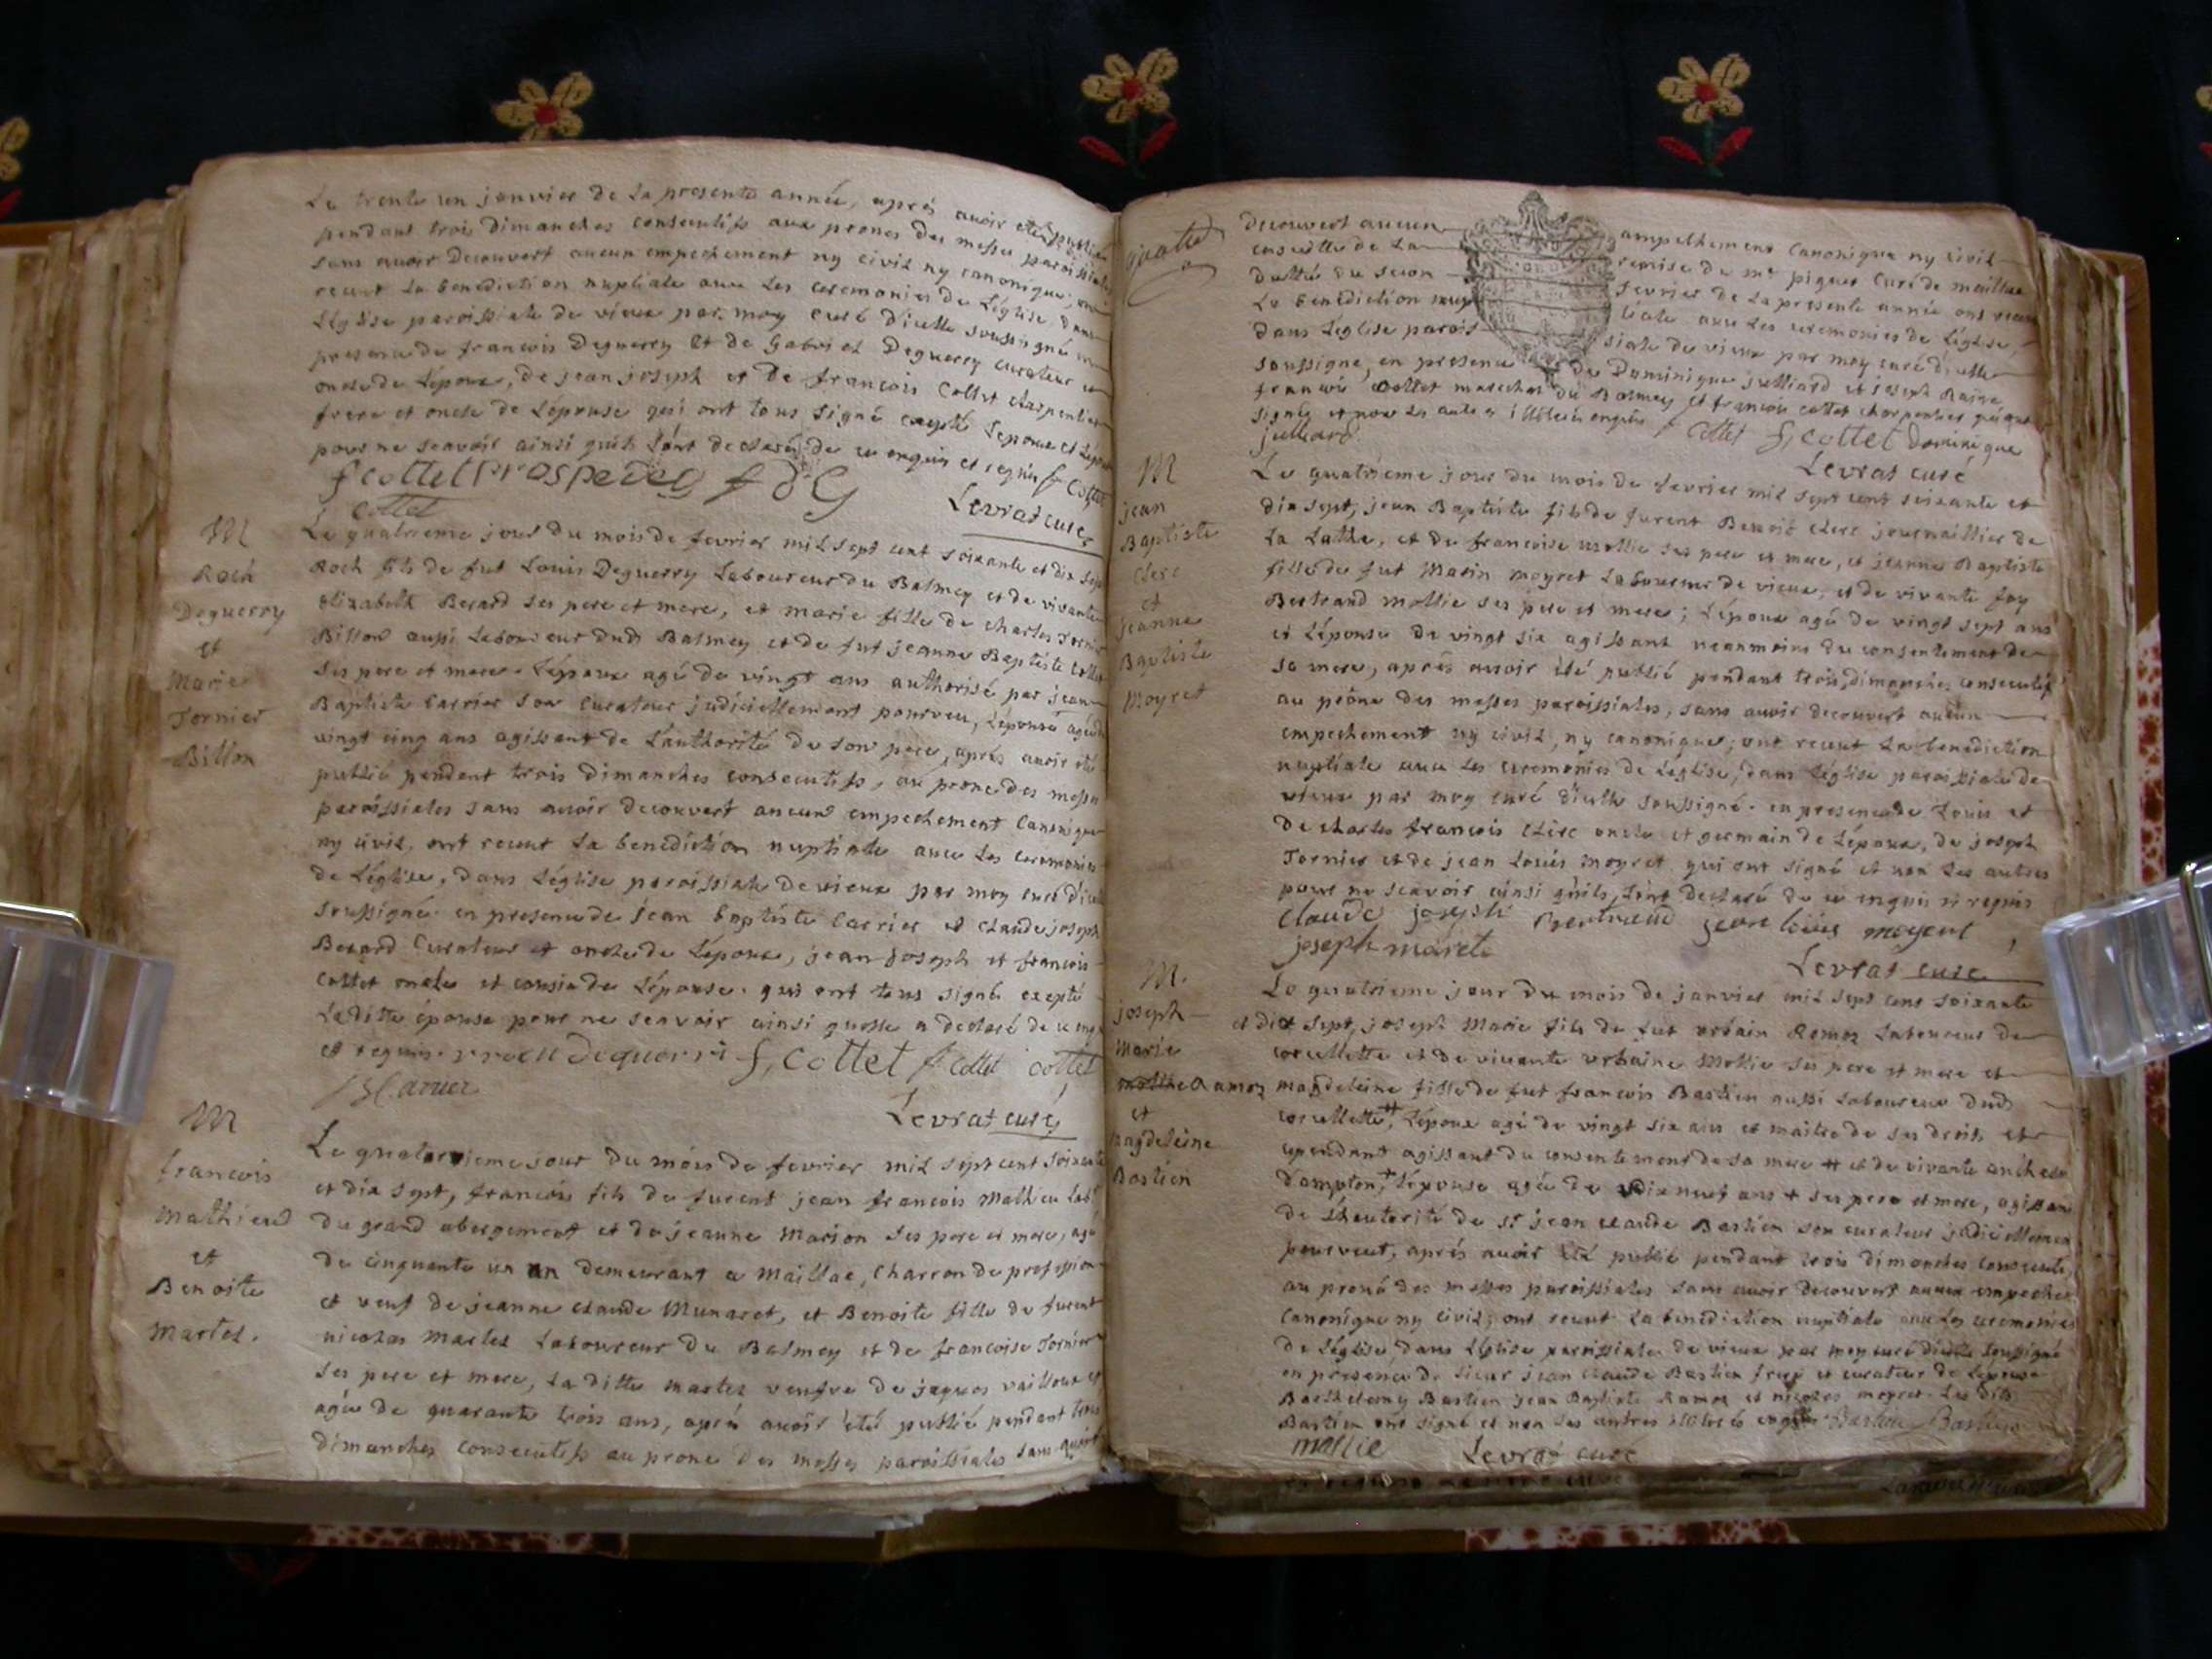 Le trente un janvier de la presente année, aprés avoir été publié
pendant trois dimanches consecutifs aux prones des messes paroissiales
sans avoir decouvert aucun empechement ny civil ny canonique, ont
receut la benediction nuptiale avec les ceremonies de Léglise, dans
Léglise paroissiale de vieux par moy curé dicelle soussigné en
presence de francois Deguerry et de Gabriel Deguerry curateur et
oncle de Lépoux, de jean joseph et de francois Collet charpentier
frere et oncle de Lépouse qui ont tous signé excepté
pour ne scavoir ainsi quils lont declaré de ce enquis et requis f Cottet
f cottet f d G
cottet Levrat curé
M
Roch
Deguerry
et
Marie
Tornier
Billon
Le quatrieme jour du mois de fevrier mil sept cent soixante et dix sept
Roch fils de fut Louis Deguerry Laboureur du Balmey et de vivante
Elizabeth Berard ses pere et mere, et marie fille de charles Tornier
Billon aussi Laboureur dud Balmey et de fut jeanne Baptiste Collet
ses pere et mere. Lépoux agé de vingt ans authorisé par jean
Baptiste Carrier son Curateur judiciellement pourveu, Lépouse agée de
vingt cinq ans agissant de Lauthorité de son pere, aprés avoir été
publié pendant trois dimanches consecutifs, au prone des messes
paroissiales sans avoir decouvert aucun empechement Canonique
ny civil, ont receut la benediction nuptiale avec les ceremonies
de Léglise, dans Léglise paroissiale de vieux par moy curé dicelle
soussigné en presence de jean baptiste Carrier et claude joseph
Berard Curateur et oncle de Lépoux, jean joseph et francois
Cottet oncle et cousin de Lépouse qui ont tous signé excepté
Laditte épouse pour ne scavoir ainsi quelle a declaré de ce enquis
et requis. f, cottet f Cottet cottet
Levrat curé
M
francois
Mathieu
et
Benoite
Martel.
Le quatorzieme jour du mois de fevrier mil sept cent soixante
et dix sept, francois fils de furent jean francois Mathieu Labr
du grand abergement et de jeanne Marion ses pere et mere, agé
de cinquante un an demeurant a Maillac, Charron de profession
et veuf de jeanne claude Munaret, et Benoite fille de furent
nicolas Martel Laboureur du Balmey et de francoise Tornier
ses pere et mere, la ditte martel veufve de jaques vailloux et
agée de quarante trois ans, aprés avoir été publié pendant trois
dimanches consecutifs au prone des messes paroissiales sans avoir
decouvert aucun empechement Canonique ny civil
ensuitte de la remise de mr piquet Curé de maillac
dattée du fevrier de la presente année ont receu
La benediction nuptiale avec les ceremonies de Léglise,
dans Léglise paroissiale de vieux par moy curé dicelle
soussigné, en presence de Dominique julliard et joseph
francois Cottet marechal du Balmey et francois cottet charpentier qui ont
signé et non les autres illiterés enquis f cottet f, cottet Dominique
julliard. Levrat curé
M
jean
Baptiste
Clerc
et
jeanne
Baptiste
Moyret
Le quatrieme jour du mois de fevrier mil sept cent soixante et
dix sept, jean Baptiste fils de furent Benoit Clerc journaillier de
La Lathe, et de francoise mollie ses pere et mere, et jeanne Baptiste
fille de fut Marin moyret Laboureur de vieux, et de vivante foy
Bertrand mollie ses pere et mere; Lépoux agé de vingt sept ans
et Lépouse de vingt six agissant neanmoins du consentement de
sa mere, aprés avoir été publié pendant trois dimanches consecutifs
au prône des messes paroissiales, sans avoir decouvert aucun
empechement ny civil, ny canonique; ont receut La benediction
nuptiale avec les ceremonies de Léglise, dans Léglise paroissiale de
vieux par moy curé dicelle soussigné. en presence de Louis et
de charles francois Clerc oncle et germain de Lépoux, de joseph
Tornier et de jean Louis moyret qui ont signé et non les autres
pour ne scavoir ainsi quils lont declaré de ce enquis et requis
claude joseph jean louis moyret
joseph
Levrat curé
M.
joseph
Marie
Ramoz
et
Magdeleine
Bastien
Le quatrieme jour du mois de janvier mil sept cent soixante
et dix sept, joseph Marie fils de fut urbain Ramoz Laboureur de
corcellette et de vivante urbaine Mollie ses pere et mere et
magdeleine fille de fut francois Bastien aussi Laboureur dud
corcellette, Lépoux agé de vingt six ans et maitre de ses droits et
cependant agissant du consentement de sa mere et de vivante
Lépouse agée de dix neuf ans + ses pere et mere, agissant
de Lhautorité de sr jean claude Bastien son curateur judiciellement
pourveut, aprés avoir été publié pendant trois dimanches consecutifs
au proné des messes paroissiales sans avoir decouvert aucun empechet
Canonique ny civil; ont receut La benediction nuptiale avec Les ceremonies
de Léglise, dans Léglise paroissiale de vieux par moy curé dicelle soussigné
en presence de sieur jean claude Bastien frere et curateur de Lépouse
Barthelemy Bastien jean Baptiste Ramoz et nicolas moyret. Les dits
Bastien ont signé et non les autres illiterés enquis Bastien Bastien
mollie Levrat curé